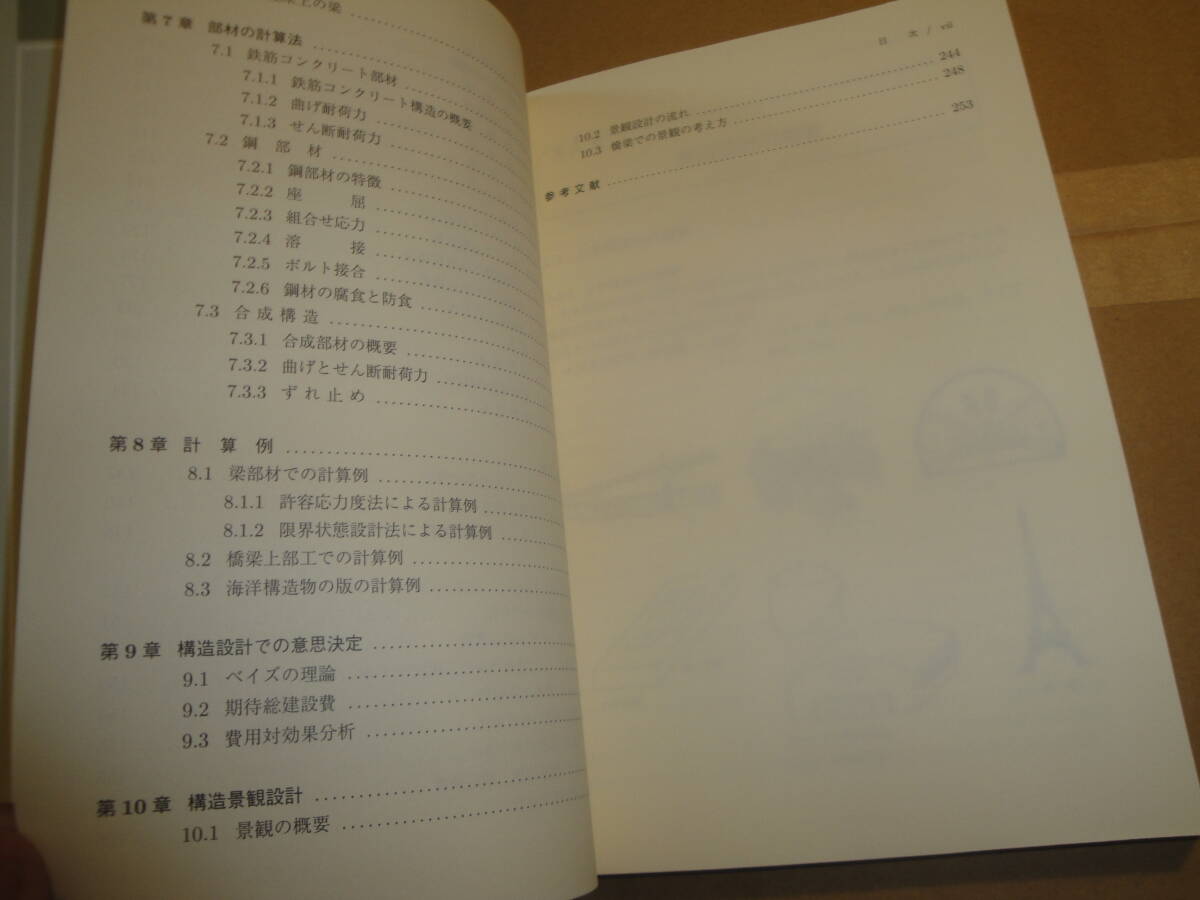 上の梁
第7章 部材の計算法
7.1 鉄筋コンクリート部材
7.1.1 鉄筋コンクリート構造の概要
7.1.2 曲げ耐荷力
7.1.3 せん断耐荷力
7.2 鋼部材
7.2.1 鋼部材の特徴
7.2.2 座屈
7.2.3 組合せ応力
7.2.4 溶接
7.2.5 ボルト接合
7.2.6 鋼材の腐食と防食
7.3 合成構造
7.3.1 合成部材の概要
7.3.2 曲げとせん断耐荷力
7.3.3 ずれ止め
第8章 計算例
8.1 梁部材での計算例
8.1.1 許容応力度法による計算例
8.1.2 限界状態設計法による計算例
8.2 橋梁上部工での計算例
8.3 海洋構造物の版の計算例
第9章 構造設計での意思決定
9.1 ベイズの理論
9.2 期待総建設費
9.3 費用対効果分析
第10章 構造景観設計
10.1 景観の概要
目次 / vii
10.2 景観設計の流れ 244
10.3 橋梁での景観の考え方 248
参考文献 253